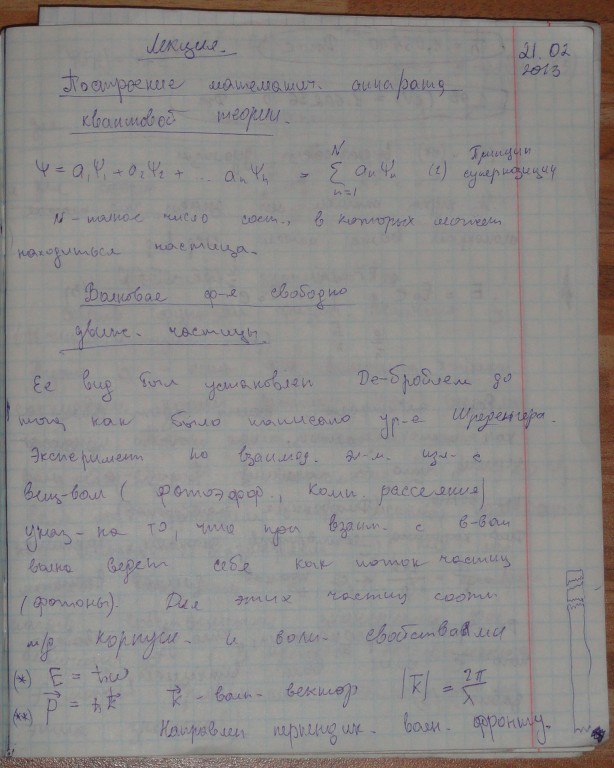 Лекция.
21.02
2013
Построение математич. аппарата
квантовой теории.
Ψ = a₁Ψ₁ + a₂Ψ₂ + ... aₙΨₙ = ∑ᴺₙ₌₁ aₙΨₙ (2) Принцип суперпозиции
N - полное число сост., в которых может
находиться частица.
Волновае ф-я свободно
движ. частицы.
Ее вид был установлен Де-Бройлем до
того, как было написано ур-е Шредингера.
Эксперимент по взаимод. э-м. изл-е с
вещ-вом ( фотоэфф., комп. рассеяния)
указ-на то, что при взаим. с в-вом
волна ведет себя как поток частиц
(фотоны). Для этих частиц соотн.
м/д корпуск. и волн. свойствами
(*) E = ħω
(**) p⃗ = ħk⃗ k⃗ - волн. вектор |k⃗| = 2π/λ
Направлен перпендик. волн. фронту.